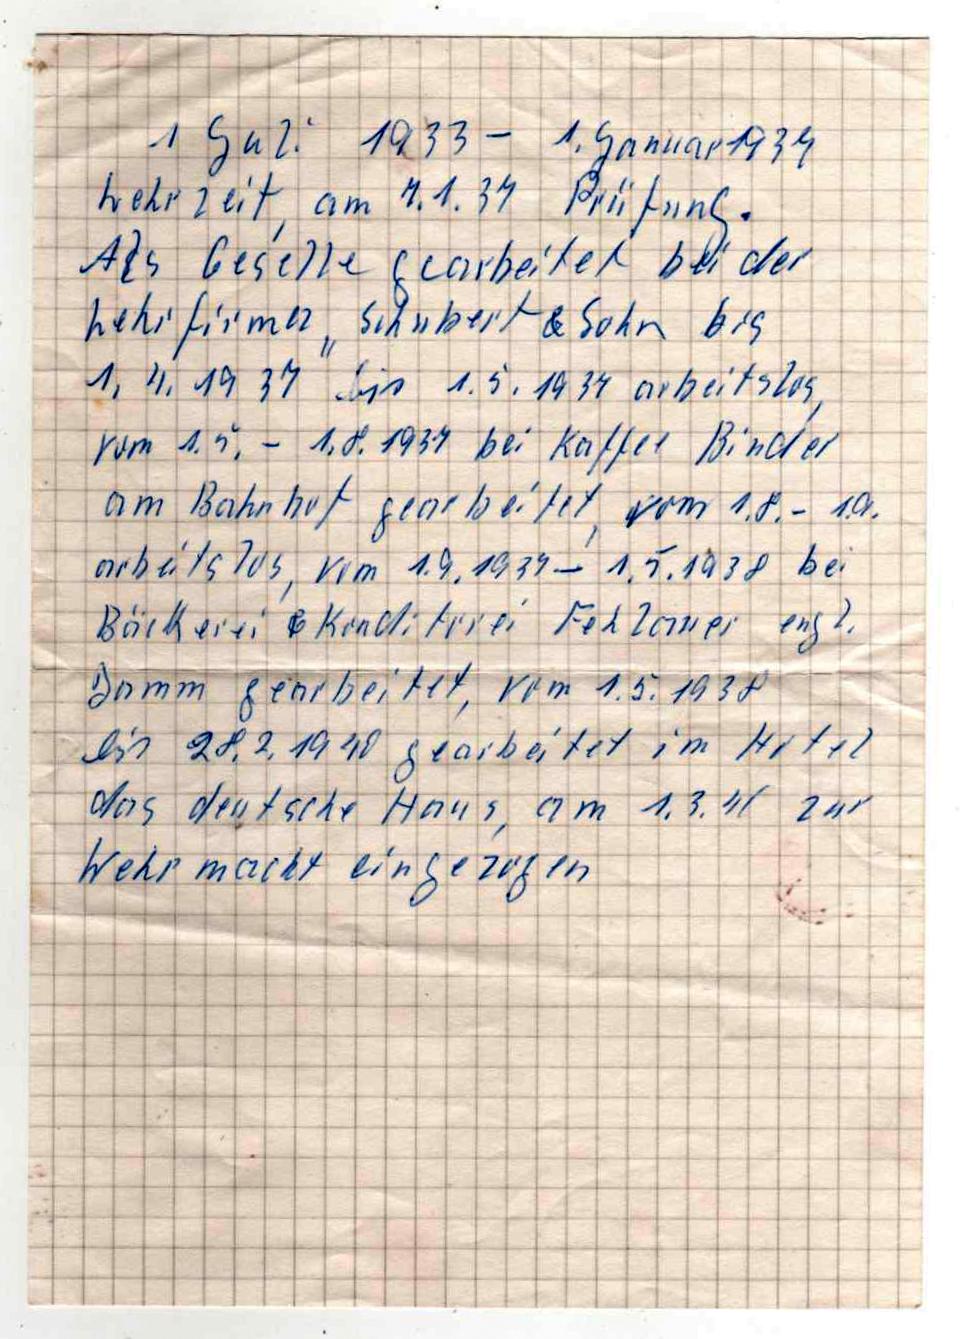 1 Juli 1933 – 1. Januar 1937
Lehrzeit, am 7.1.37 Prüfung.
Als Geselle gearbeitet bei der
Lehrfirma „Schubert & Sohn bis
1. 4. 1937 bis 1.5.1937 arbeitslos,
vom 1.5. – 1.8.1937 bei Kaffee Binder
am Bahnhof gearbeitet, vom 1.8. – 1.9.
arbeitslos, vom 1.9.1937 – 1.5.1938 bei
Bäckerei & Konditorei Fehlamer engl.
Damm gearbeitet, vom 1.5.1938
bis 28.2.1940 gearbeitet im Hotel
das deutsche Haus, am 1.3.41 zur
Wehrmacht eingezogen